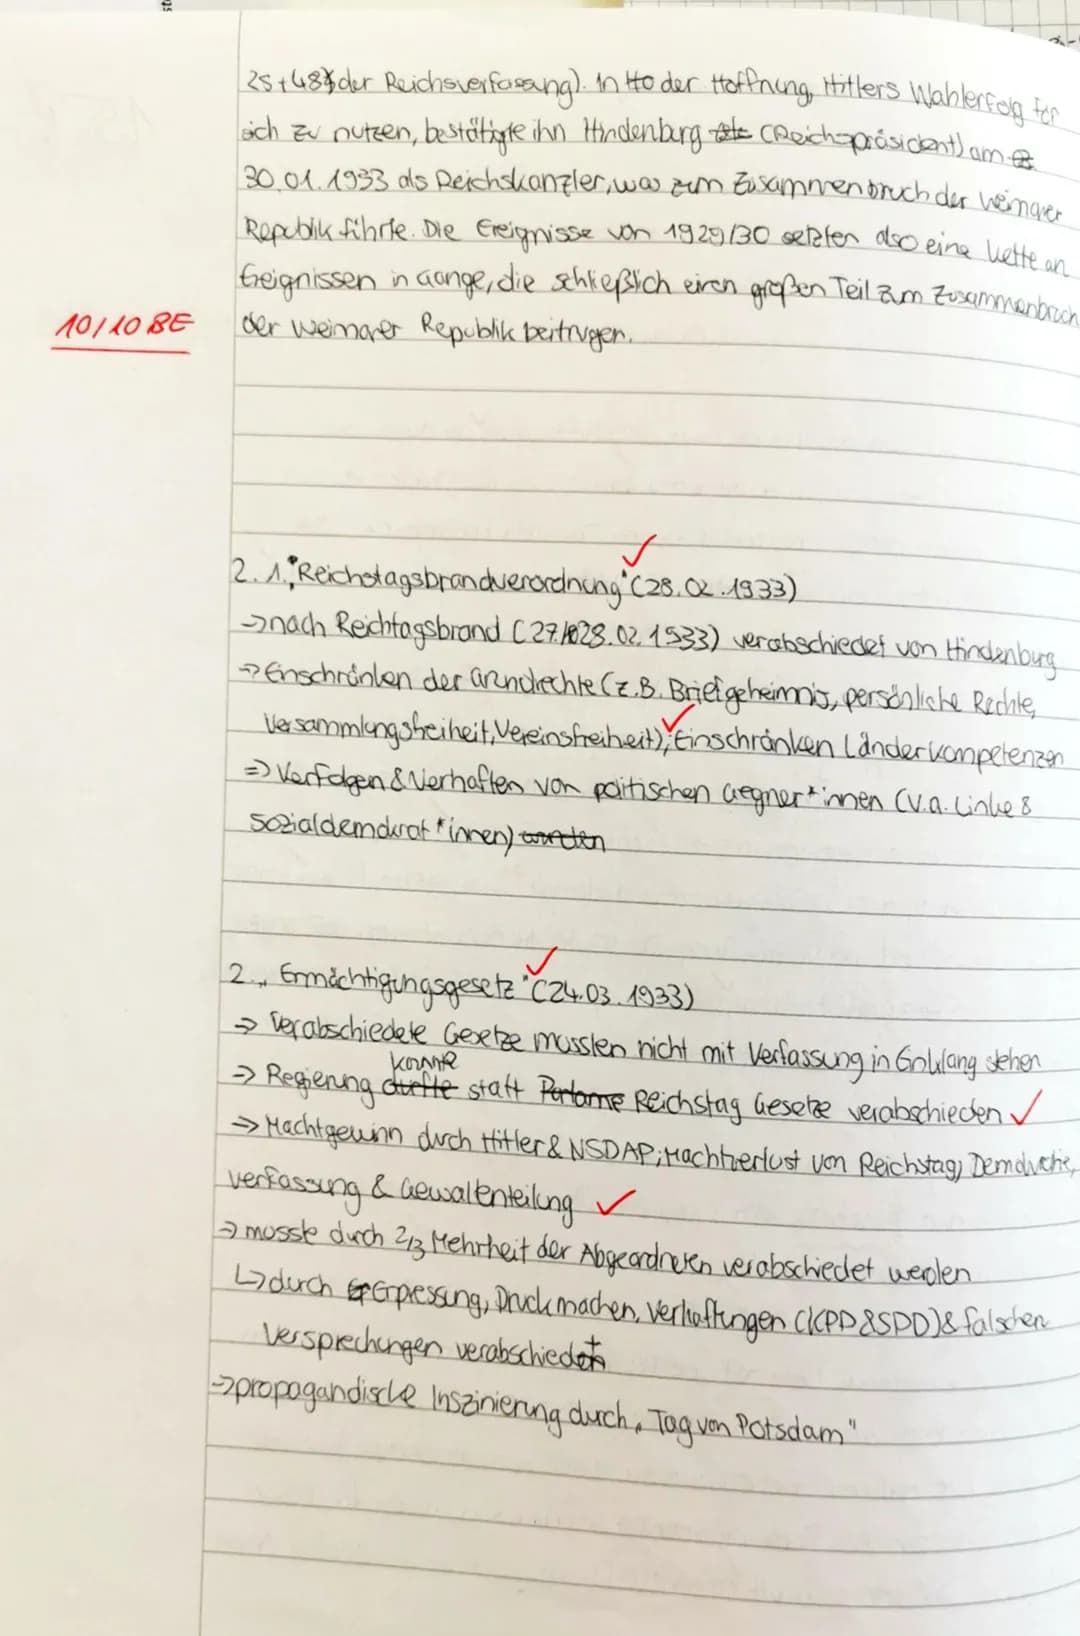 25+48 der Reichsverfassung). In der Hoffnung, Hitlers Wahlerfolg für
sich zu nutzen, bestätigte ihn Hindenburg (Reichspräsident) am
30.01.1933 als Reichskanzler, was zum Zusammenbruch der Weimarer
Republik führte. Die Ereignisse von 1929/30 setzten also eine Kette an
Ereignissen in Gange, die schließlich einen großen Teil zum Zusammenbruch
10/10 BE der Weimarer Republik beitrugen.
2. 1. "Reichstagsbrandverordnung" (28.02.1933)
→ nach Reichtagsbrand (27./28.02.1933) verabschiedet von Hindenburg
→ Einschränken der Grundrechte (z.B. Briefgeheimnis, persönliche Rechte,
Versammlungsfreiheit, Vereinsfreiheit); Einschränken Länderkompetenzen
⇒ Verfolgen & Verhaften von politischen Gegner*innen (v.a. Linke &
Sozialdemokrat*innen) worden
2. „Ermächtigungsgesetz" (24.03.1933)
→ Verabschiedete Gesetze mussten nicht mit Verfassung in Einklang stehen
konnte
→ Regierung durfte statt Parlame Reichstag Gesetze verabschieden
→ Machtgewinn durch Hitler & NSDAP; Machtverlust von Reichstag, Demokratie,
Verfassung & Gewaltenteilung
→ musste durch 2/3 Mehrheit der Abgeordneten verabschiedet werden
↳ durch Erpressung, Druck machen, Verhaftungen (KPD & SPD) & falschen
Versprechungen verabschiedet
→ propagandische Inszinierung durch „Tag von Potsdam"